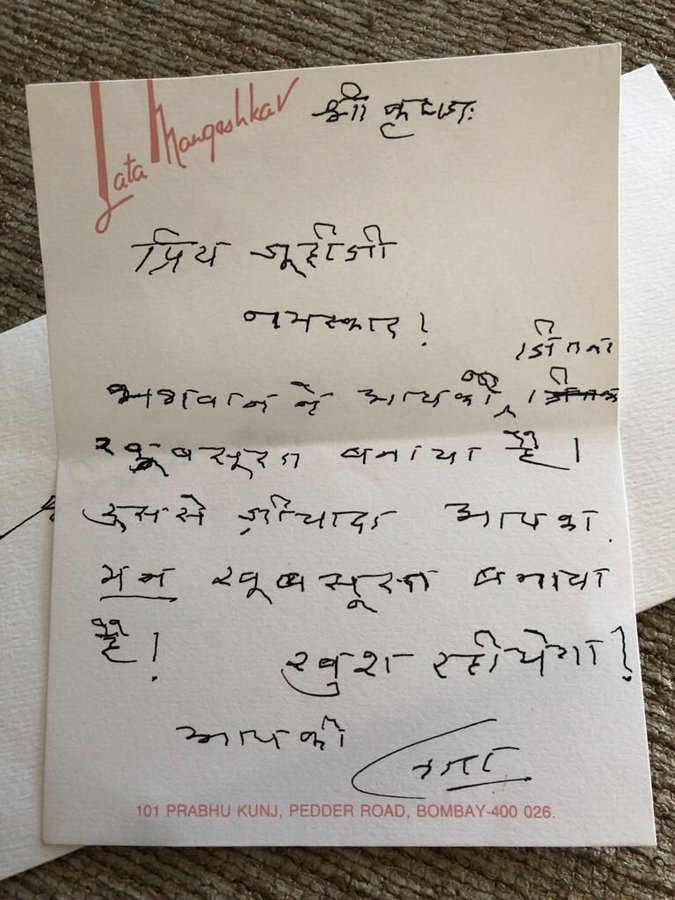 Lata Mangeshkar
श्री कृष्ण:
प्रिय जूहीजी
नमस्कार!
जितना
भगवान ने आपको
खूबसूरत बनाया है।
इससे ज़ीयादा आपका
मन खूबसूरत बनाया
है!
खुश रहीयेगा!
आपकी
लता
101 PRABHU KUNJ, PEDDER ROAD, BOMBAY-400 026.